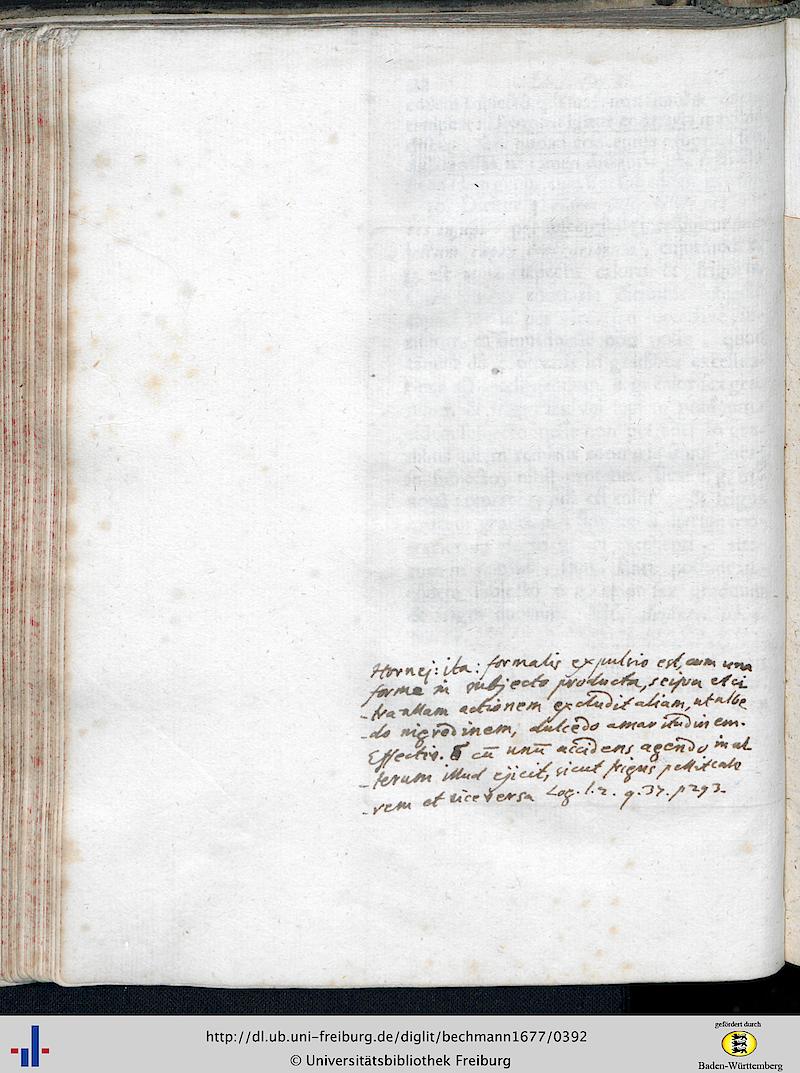 Hornej: ita: formalis expulsio est, cum una
forma in subjecto producta, seipsa et ci
-tra ullam actionem excludit aliam, ut albe
-do nigredinem, dulcedo amaritudinem.
Effectiv. cū unū accidens agendo in al
-terum illud ejicit, sicut frigus pellit calo
-rem et vice versa Log. l. 2. q. 37. p 293.
http://dl.ub.uni-freiburg.de/diglit/bechmann1677/0392
© Universitätsbibliothek Freiburg
gefördert durch
Baden-Württemberg